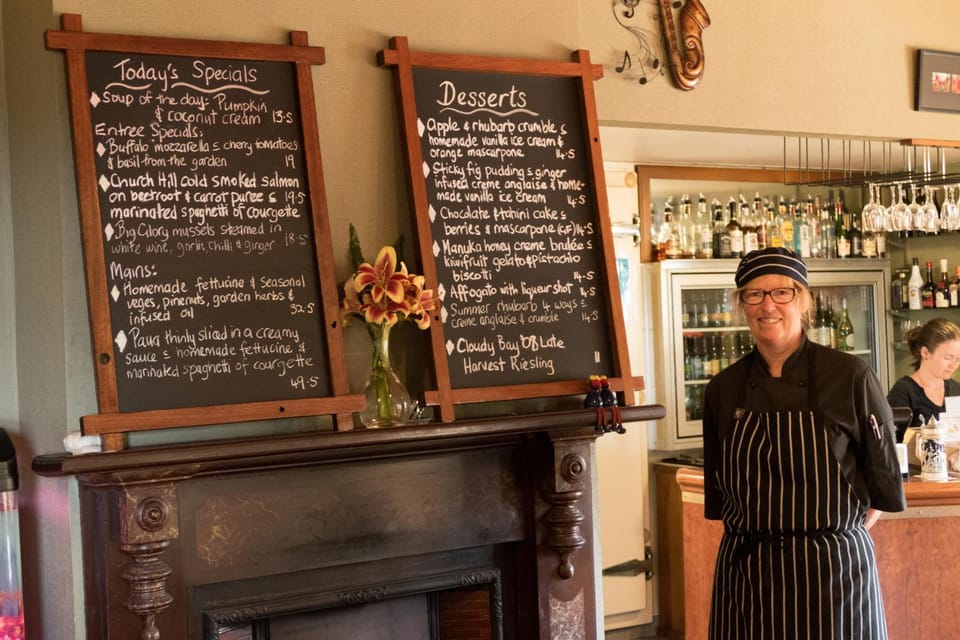 Today's Specials
Soup of the day: Pumpkin
& coconut cream 13.5
Entree Specials:
Buffalo mozzarella c cherry tomatoes
& basil from the garden 19
Church Hill cold smoked salmon
on beetroot & carrot puree c 19.5
marinated spaghetti of courgette
Big Glory mussels steamed in
white wine, garlic, chilli & ginger 18.5
Mains:
Homemade fettucine & seasonal
veges, pinenuts, garden herbs &
infused oil 32.5
Paua thinly sliced in a creamy
sauce c homemade fettucine &
marinated spaghetti of courgette
49.5
Desserts
Apple & rhubarb crumble c
homemade vanilla ice cream &
orange mascarpone 14.5
Sticky fig pudding c ginger
infused creme anglaise & home-
made vanilla ice cream 14.5
Chocolate & tahini cake c
berries & mascarpone (G.F) 14.5
Manuka honey creme brulée c
kiwifruit gelato & pistachio
biscotti 14.5
Affogato with liqueur shot 14.5
Summer rhubarb 4 ways c
creme anglaise & crumble 14.5
Cloudy Bay '08 Late
Harvest Riesling